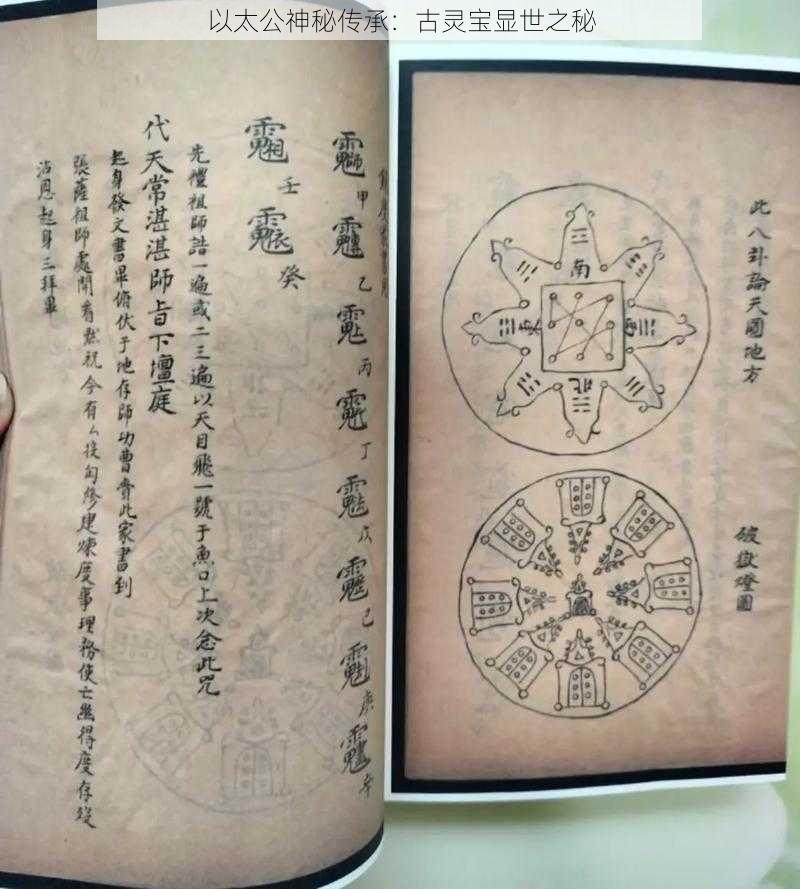 以太公神秘传承：古灵宝显世之秘
甲
乙
丙
丁
戊
己
庚
辛
壬
癸
先禮祖師誥一遍或二三遍以天目飛一號于魚口上次念此咒
代天常湛湛師旨下壇庭
起身發文書畢俯伏于地存師功曹賫此家書到
張薩祖師處開看默祝今有厶投詞修建煉度事理務使亡幽得度存歿
沾恩起身三拜畢
此八卦論天圓地方
南
北
破獄燈圖